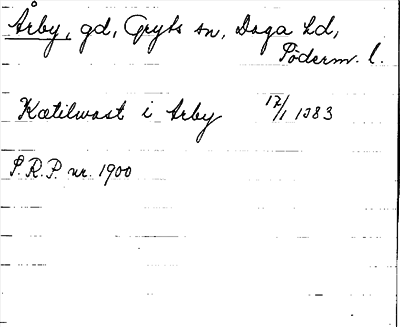 Årby, gd, Gryts sn, Daga hd,
Söderm. l.
Kætilwast i Arby 17/1 1383
S.R.P. nr. 1900